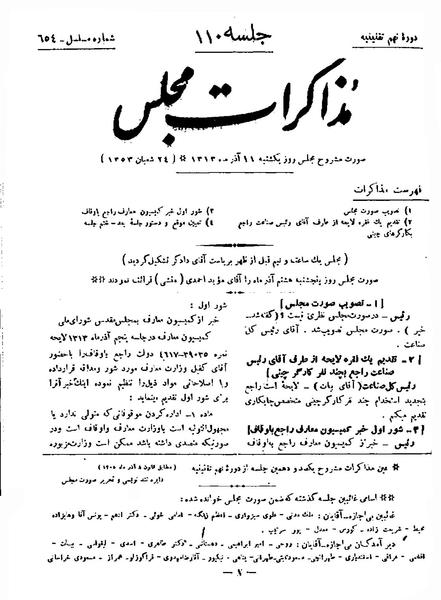 دورهٔ نهم تقنینیه
جلسه ۱۱۰
شماره مسلسل - ۶۵۴
مذاکرات مجلس
صورت مشروح مجلس روز یکشنبه ۱۱ آذر ماه ۱۳۱۳ * ( ۲۴ شعبان ۱۳۵۳ )
فهرست مذاکرات
۱) تصویب صورت مجلس
۲) تقدیم یك فقره لایحه از طرف آقای رئیس صناعت راجع
بکارگرهای چینی
۳) شور اول خبر کمیسیون معارف راجع باوقاف
۴) تعیین موقع و دستور جلسه بعد - ختم جلسه
( مجلس یك ساعت و نیم قبل از ظهر بریاست آقای دادگر تشکیل گردید )
صورت مجلس روز پنجشنبه هشتم آذر ماه را آقای مؤید احمدی ( منشی ) قرائت نمودند **
[ ۱ - تصویب صورت مجلس ]
رئیس - در صورت مجلس نظری نیست ؟ ( گفته شد -
خیر ) . صورت مجلس تصویب شد . آقای رئیس کل
صناعت .
[ ۲ - تقدیم یك فقره لایحه از طرف آقای رئیس
صناعت راجع بچند نفر کارگر چینی ]
رئیس کل صناعت ( آقای بیات ) - لایحه است راجع
بتجدید استخدام چند نفر کارگر چینی متخصص چایکاری
تقدیم میکنم .
[ ۳ - شور اول خبر کمیسیون معارف راجع باوقاف ]
رئیس - خبر از کمیسیون معارف راجع به اوقاف
شور اول :
خبر از کمیسیون معارف بمجلس مقدس شورای ملی
کمیسیون معارف در جلسه پنجم آذرماه ۱۳۱۳ لایحه
نمره ۳۹۰۳۵-۶۱۷ دولت راجع باوقاف را با حضور
آقای کفیل وزارت معارف مورد شور و مداقه قرار داده
و با اصلاحاتی مواد ذیل را تنظیم نموده اینك خبر آنرا
برای شور اول تقدیم مینماید :
ماده ۱ - اداره کردن موقوفاتی که متولی ندارد یا
مجهول التولیه است با وزارت معارف و اوقاف است و در
صورتیکه متصدی داشته باشد ممکن است وزارت مزبوره
* عین مذاکرات مشروح یکصد و دهمین جلسه از دوره نهم تقنینیه
( مطابق قانون ۸ آذر ماه ۱۳۰۵ )
دایره تند نویسی و تحریر صورت مجلس
** اسامی غائبین جلسه گذشته که ضمن صورت مجلس خوانده شده :
غائبین بی اجازه - آقایان :
دیر آمدگان بی اجازه - آقایان :
- ۷ -